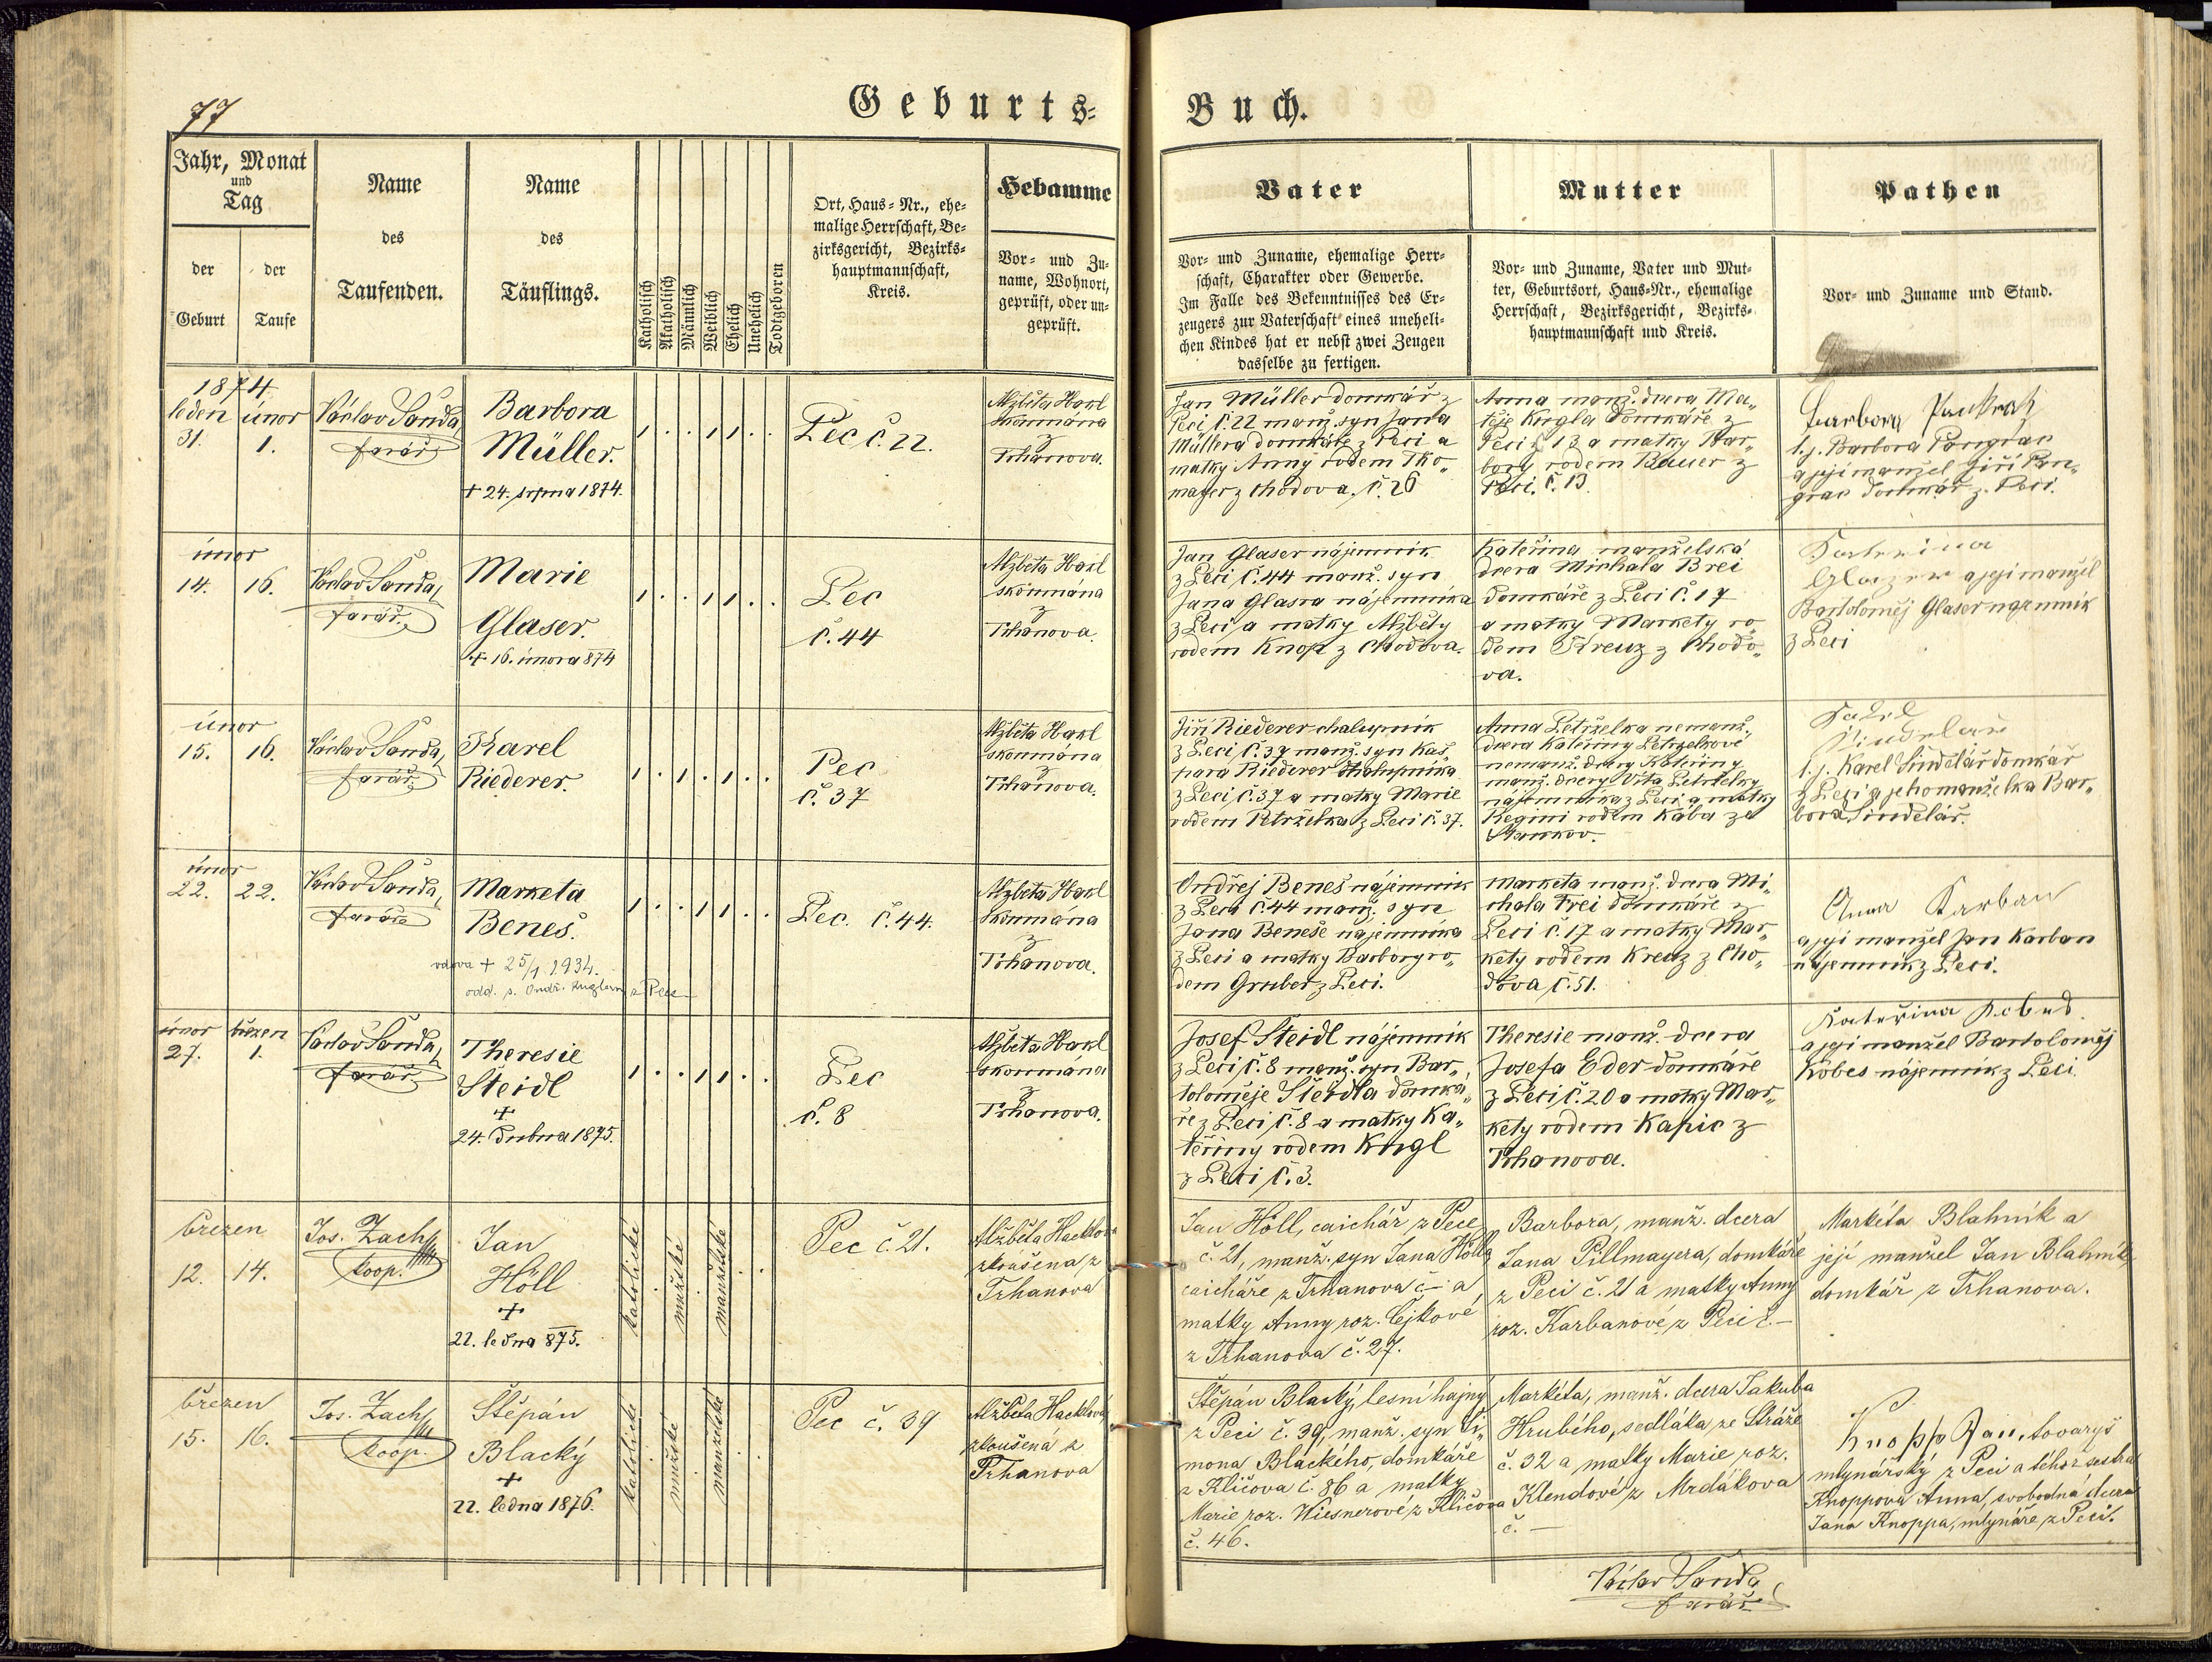 77
Geburts-
Buch.
Jahr, Monat
und
Tag
der
Geburt
der
Taufe
Name
des
Taufenden.
Name
des
Täuflings.
Katholisch
Akatholisch
Männlich
Weiblich
Ehelich
Unehelich
Todtgeboren
Ort, Haus-Nr., ehe-
malige Herrschaft, Be-
zirksgericht, Bezirks-
hauptmannschaft,
Kreis.
Hebamme
Vor- und Zu-
name, Wohnort,
geprüft, oder un-
geprüft.
Vater
Vor- und Zuname, ehemalige Herr-
schaft, Charakter oder Gewerbe.
Im Falle des Bekenntnisses des Er-
zeugers zur Vaterschaft eines uneheli-
chen Kindes hat er nebst zwei Zeugen
dasselbe zu fertigen.
Mutter
Vor- und Zuname, Vater und Mut-
ter, Geburtsort, Haus-Nr., ehemalige
Herrschaft, Bezirksgericht, Bezirks-
hauptmannschaft und Kreis.
Pathen
Vor- und Zuname und Stand.
1874
leden únor
31. 1.
Václav Šanda,
farář
Barbora
Müller.
+ 24. srpna 1874.
Pec č. 22.
Alžběta Hakl
zkoumána
z
Trhanova.
Jan Müller domkář z
Peci č. 22 manž. syn Jana
Müllera domkáře z Peci a
matky Anny rodem Tho„
mayer z Chodova. č. 26
Anna manž. dcera Ma„
těje Kugla domkáře z
Peci č. 13 a matky Bar„
bory rodem Bauer z
Peci. č. 13.
Barbora
t. j. Barbora Pangrac
a její manžel Jiří Pan„
grac domkář z Peci.
únor
14. 16.
Václav Šanda,
farář
Marie
Glaser.
+ 16. února 874
Pec
č. 44
Alžběta Hakl
zkoumána
z
Trhanova.
Jan Glaser nájemník
z Peci č. 44 manž. syn
Jana Glasra nájemníka
z Peci a matky Alžběty
rodem Knop z Chodova.
Kateřina manželská
dcera Michala Brei
domkáře z Peci č. 17
a matky Markety ro„
dem Kreuz z Chodo„
va.
Katerina
Glazer a její manžel
Bartoloměj Glaser nájemník
z Peci
únor
15. 16.
Václav Šanda,
farář
Karel
Riederer.
Pec
č. 37
Alžběta Hakl
zkoumána
z
Trhanova.
Jiří Riederer chalupník
z Peci č. 37 manž. syn Kaš„
para Riederer chalupníka
z Peci č. 37 a matky Marie
rodem Petrželka z Peci č. 37.
Anna Petrželka nemanž.
dcera Kateřiny Petrželkové
nemanž. dcery Kateřiny
manž. dcery Víta Petrželky
nájemníka z Peci a matky
Reginy rodem Kába ze
Stankov.
Karel
Šindelař
t. j. Karel Šindelář domkář
z Peci a jeho manželka Bar„
bora Šindelář.
únor
22. 22.
Václav Šanda,
farář
Marketa
Beneš.
vdova + 25/1 1934.
odd. s. Ondř. Kuglem z Pece
Pec. č. 44.
Alžběta Hakl
zkoumána
z
Trhanova.
Ondřej Beneš nájemník
z Peci č. 44 manž. syn
Jana Beneše nájemníka
z Peci a matky Barbory ro„
dem Gruber z Peci.
Marketa manž. dcera Mi„
chala Brei domkáře z
Peci č. 17 a matky Mar„
kety rodem Kreuz z Cho„
dova č. 51.
Anna Karban
a její manžel Jan Karban
nájemník z Peci.
únor březen
27. 1.
Václav Šanda,
farář
Theresie
Steidl
+
24. dubna 1875.
Pec
č. 8
Alžběta Hakl
zkoumána
z
Trhanova.
Josef Steidl nájemník
z Peci č. 8 manž. syn Bar„
toloměje Steidla domká„
ře z Peci č. 8 a matky Ka„
teřiny rodem Kugl
z Peci č. 3.
Theresie manž. dcera
Josefa Eder domkáře
z Peci č. 20 a matky Mar„
kety rodem Kapic z
Trhanova.
Kateřina
a její manžel Bartoloměj
Kobes nájemník z Peci.
březen
12. 14.
Jos. Zach
koop.
Jan
Höll
+
22. ledna 875.
katolické
mužské
manželské
Pec č. 21.
Alžběta Hacklová
zkoušena z
Trhanova
Jan Höll, caichář z Pece
č. 21, manž. syn Jana Hölla
caicháře z Trhanova č – a
matky Anny roz. Čejkové
z Trhanova č. 27.
Barbora, manž. dcera
Jana Pillmayera, domkáře
z Peci č. 21 a matky Anny
roz. Karbanové z Peci č. –
Markéta Blahník a
její manžel Jan Blahník,
domkář z Trhanova.
březen
15. 16.
Jos. Zach
koop.
Štěpán
Blacký
+
22. ledna 1876.
katolické
mužské
manželské
Pec č. 39
Alžběta Hacklová
zkoušená z
Trhanova
Štěpán Blacký, lesní hajný
z Peci č. 39, manž. syn Ši„
mona Blackého, domkáře
z Klíčova č. 86 a matky
Marie roz. Wiesnerové z Klíčova
č. 46.
Markéta, manž. dcera Jakuba
Hrubého, sedláka ze Stráže
č. 32 a matky Marie roz.
Klendové z Mrdákova
č. –
Knopp Jan, tovaryš
mlynářský z Peci a téhož sestra
Knoppova Anna, svobodná dcera
Jana Knoppa, mlynáře z Peci.
Václav Šanda
farář